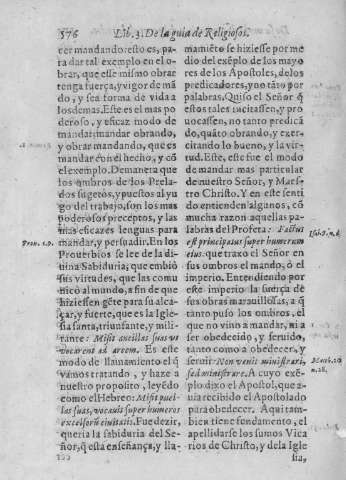 576 Lib. 3. De la guia de Religiosos.
cer mandando: esto es, pa
ra dar tal exemplo en el o
brar, que esse mismo obrar
tenga fuerça, y vigor de mã
do, y sea forma de vida a
los demas. Este es el mas po
deroso, y eficaz modo de
mandar; mandar obrando,
y obrar mandando, que es
mandar con el hecho, y cõ
el exemplo. Demanera que
los ombros de los Prela-
dos sugetos, y puestos al yu
go del trabajo, son los mas
poderosos preceptos, y las
mas eficazes lenguas para
mandar, y persuadir. En los
Prouerbios se lee de la di-
uina Sabiduria, que embiò
sus virtudes, que las comu
nicò al mundo, a fin de que
hiziessen gẽte para su alca-
çar, y fuerte, que es la Igle
sia santa, triunfante, y mili-
tante: Misit ancillas suas vt
vocarent ad arcem. Es este
modo de llamamiento el q̃
vamos tratando, y haze a
nuestro proposito, leyẽdo
como el Hebreo: Misit puel-
las suas, vocauit super humeros
excelsorũ ciuitatis. Fue dezir,
queria la sabiduria del Se-
ñor, q̃ esta enseñança, y lla-
Prou. c. 9.
mamiẽto se hiziesse por me
dio del exẽplo de los mayo
res de los Apostoles, de los
predicadores, y no tãto por
palabras. Quiso el Señor q̃
estos tales incitassen, y pro
uocassen, no tanto predicã
do, quãto obrando, y exer-
citando lo bueno, y la vir-
tud. Este, este fue el modo
de mandar mas particular
de nuestro Señor, y Maes-
tro Christo. Y en este senti
do entienden algunos, cõ
mucha razon aquellas pa-
labras del Profeta: Factus
est principatus super humerum
eius que traxo el Señor en
sus ombros el mando, ò el
imperio. Entendiendo por
este imperio la fuerça de
sus obras marauillosas, a q̃
tanto puso los ombros, el
que no vino a mandar, ni a
ser obedecido, y seruido,
tanto como a obedecer, y
seruir: Non venit ministrari,
sed ministrare. A cuyo exẽ-
plo dixo el Apostol, que a-
uia recibido el Apostolado
para obedecer. Aqui tam-
bien tiene fundamento, el
apellidarse los sumos Vica
rios de Christo, y de la Igle
sia,
Matth. 20.
n. 28.